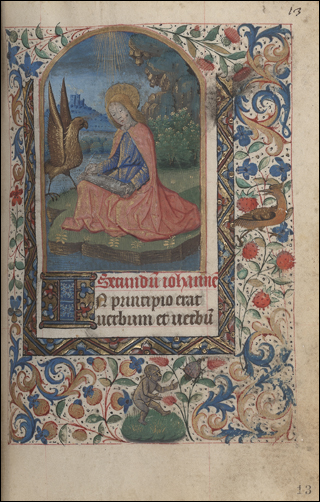 13
Secundū iohanne
IN principio erat
uerbum et uerbū
13